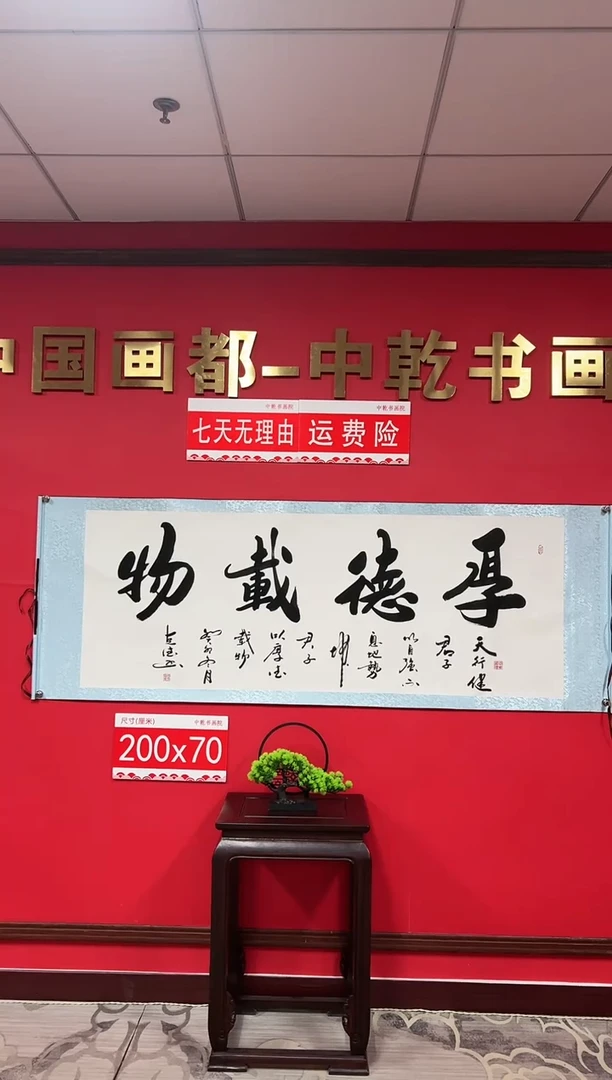 中国画都-中乾书画
中乾书画院
七天无理由
中乾书画院
运费险
厚德載物
天行健
君子
以自强不
息地势
坤
君子
以厚德
载物
癸卯冬月
尺寸(厘米)
中乾书画院
200x70